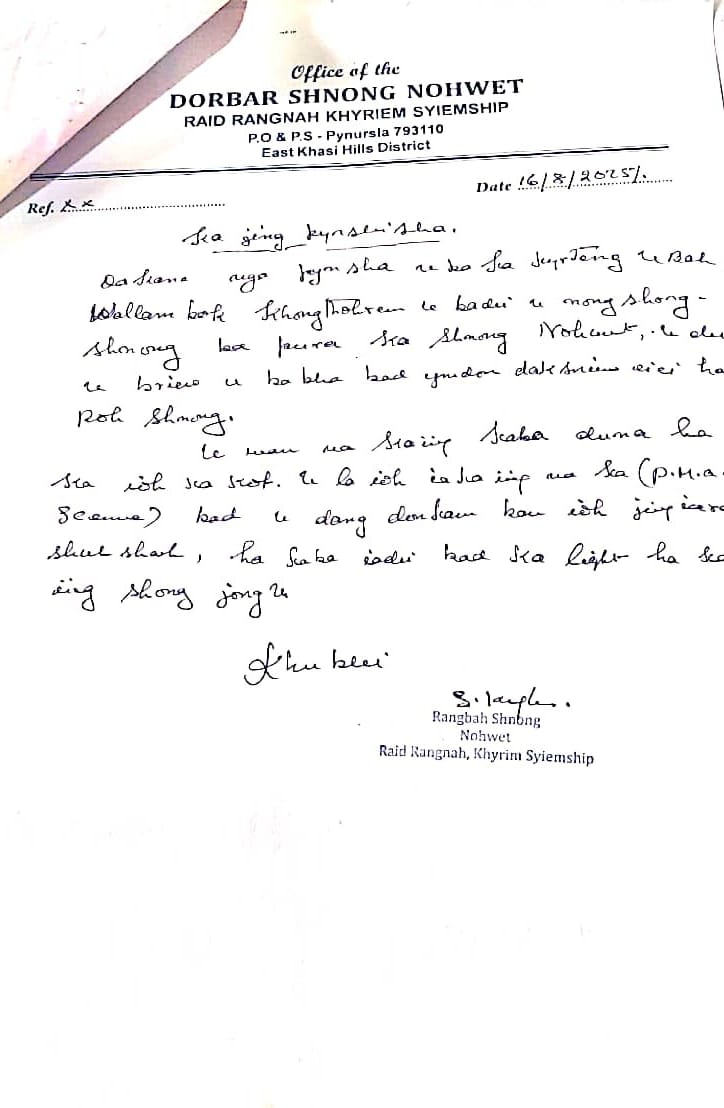 Office of the
DORBAR SHNONG NOHWET
RAID RANGNAH KHYRIEM SYIEMSHIP
P.O & P.S - Pynursla 793110
East Khasi Hills District
Ref. x x
Date 16/8/2025/.
Ka jing kynshisha.
Da kane nga sha u ba ka kyrteng u Bah
Wallam bok Khongthohrem u badei u nong shong-
shnong ba ka Shnong Nohwet, u dei
u briew u ba bha bad ymdon dak sniew eiei ha
Roh Shnong.
Le na kaba duna ha
ka ioh ka kot. U la ioh ia ka iing na ka (P.M.A.
Sceeme) bad u dang donkam ban ioh jingiar
shuh shuh, ha kaba iadei bad ka light ha ka
iing shong jong u
Khublei
Rangbah Shnong
Nohwet
Raid Rangnah, Khyrim Syiemship